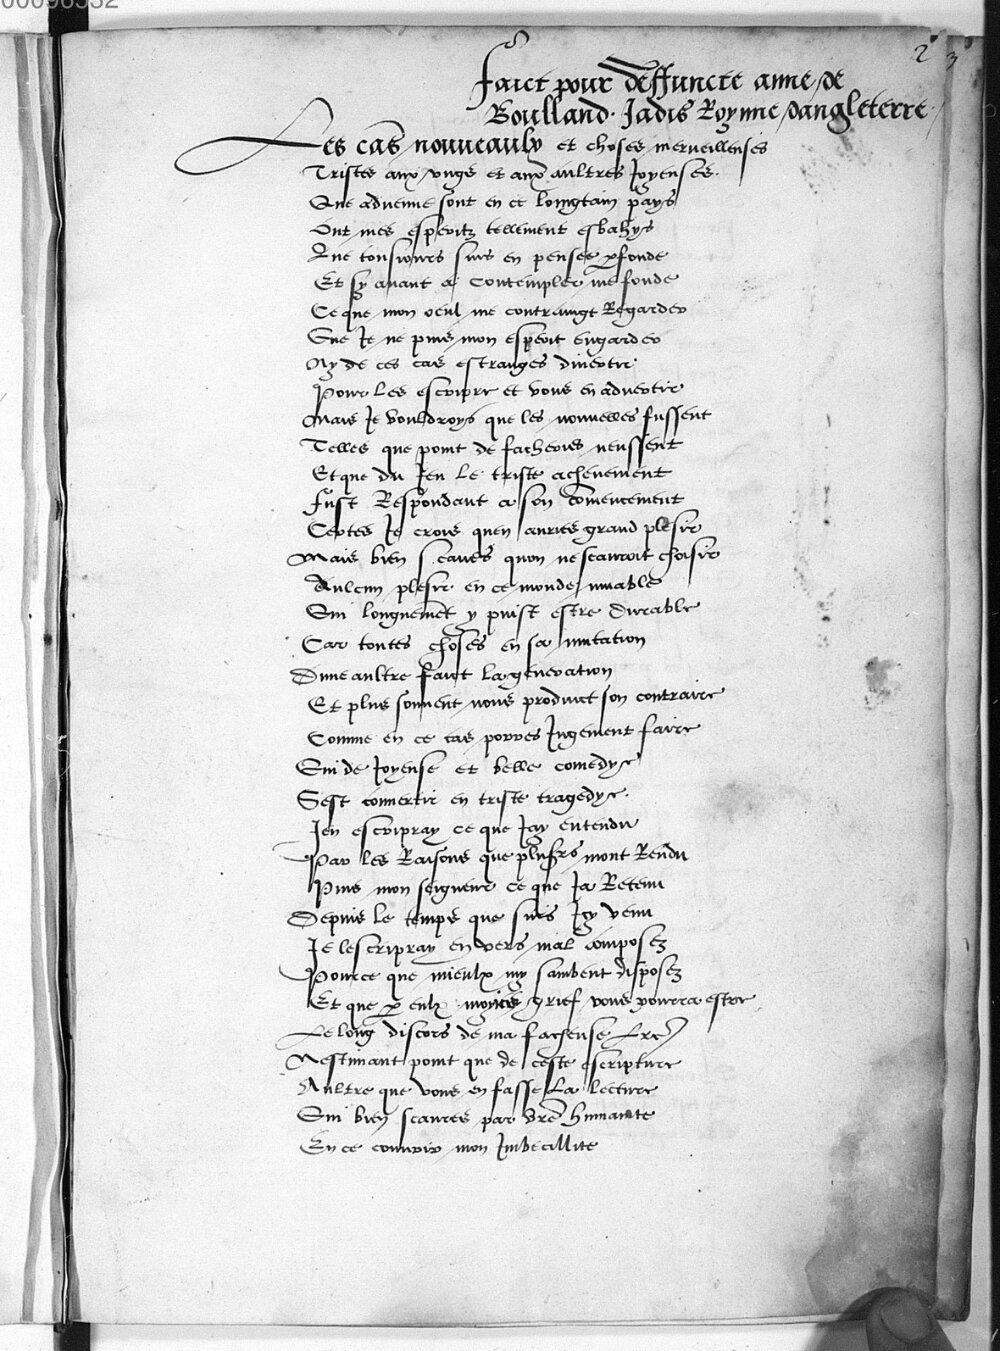 00096332
2 3
faict pour deffuncte anne de
Boulland. Jadis Royne dangleterre
Les cas nouueaulx et choses merueilleuses
Tristes aux ungs et aux aultres Joyeuses.
Que aduenue sont en ce loingtain pays
Ont mes esperitz tellement esbahys
Que tousiours suis en pensee pfonde
Et sy auant a Contempler me fonde
Ce que mon oeul me contraingt Regarder
Que Je ne puis mon esperit engarder
Ny de ces cas estranges diuertir
Pour les escripre et vous en aduertir
Mais Je vouldroys que les nouuelles fussent
Telles que point de facheries neussent
Et que du Jeu le triste acheuement
fust Respondant a son commencement
Certes Je crois quen auries grand plesir
Mais bien scaues quon ne scauroit choisir
Aulcun plesir en ce monde muable
Qui longuement y puist estre durable
Car toutes choses en sa mutation
Dune aultre faict la generation
Et plus souuent nous produict son contraire
Comme en ce cas poves Jugement faire
Qui de Joyeuse et belle comedye
Sest conuertir en triste tragedye.
Jen escripray ce que Jay entendu
Par les Raisons que plusrs mont Rendu
Puis mon seigneur ce que Ja Retenu
Depuis le temps que suis Jcy venu
Je lescripray en vers mal composez
Pource que mieulx my sambent disposez
Et que p eulx moins grief vous pourra estre
Le long discors de ma facheuse Lre
Nestimant point que de ceste escripture
Aultre que vous en fasse la lecture
Qui bien scaures par vre humanite
En ce couurir mon Imbecillite